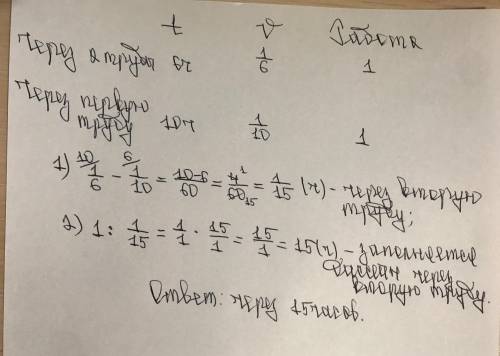 t v Работа
Через 2 трубы 6ч 1/6 1
Через первую
трубу 10ч 1/10 1
1) 10/ 1/6 - 6/ 1/10 = 10-6/60 = 4¹/60₁₅ = 1/15 (ч) - через вторую
трубу;
2) 1 : 1/15 = 1/1 · 15/1 = 15/1 = 15(ч) - заполняется
бассейн через
вторую трубу.
Ответ: через 15 часов.